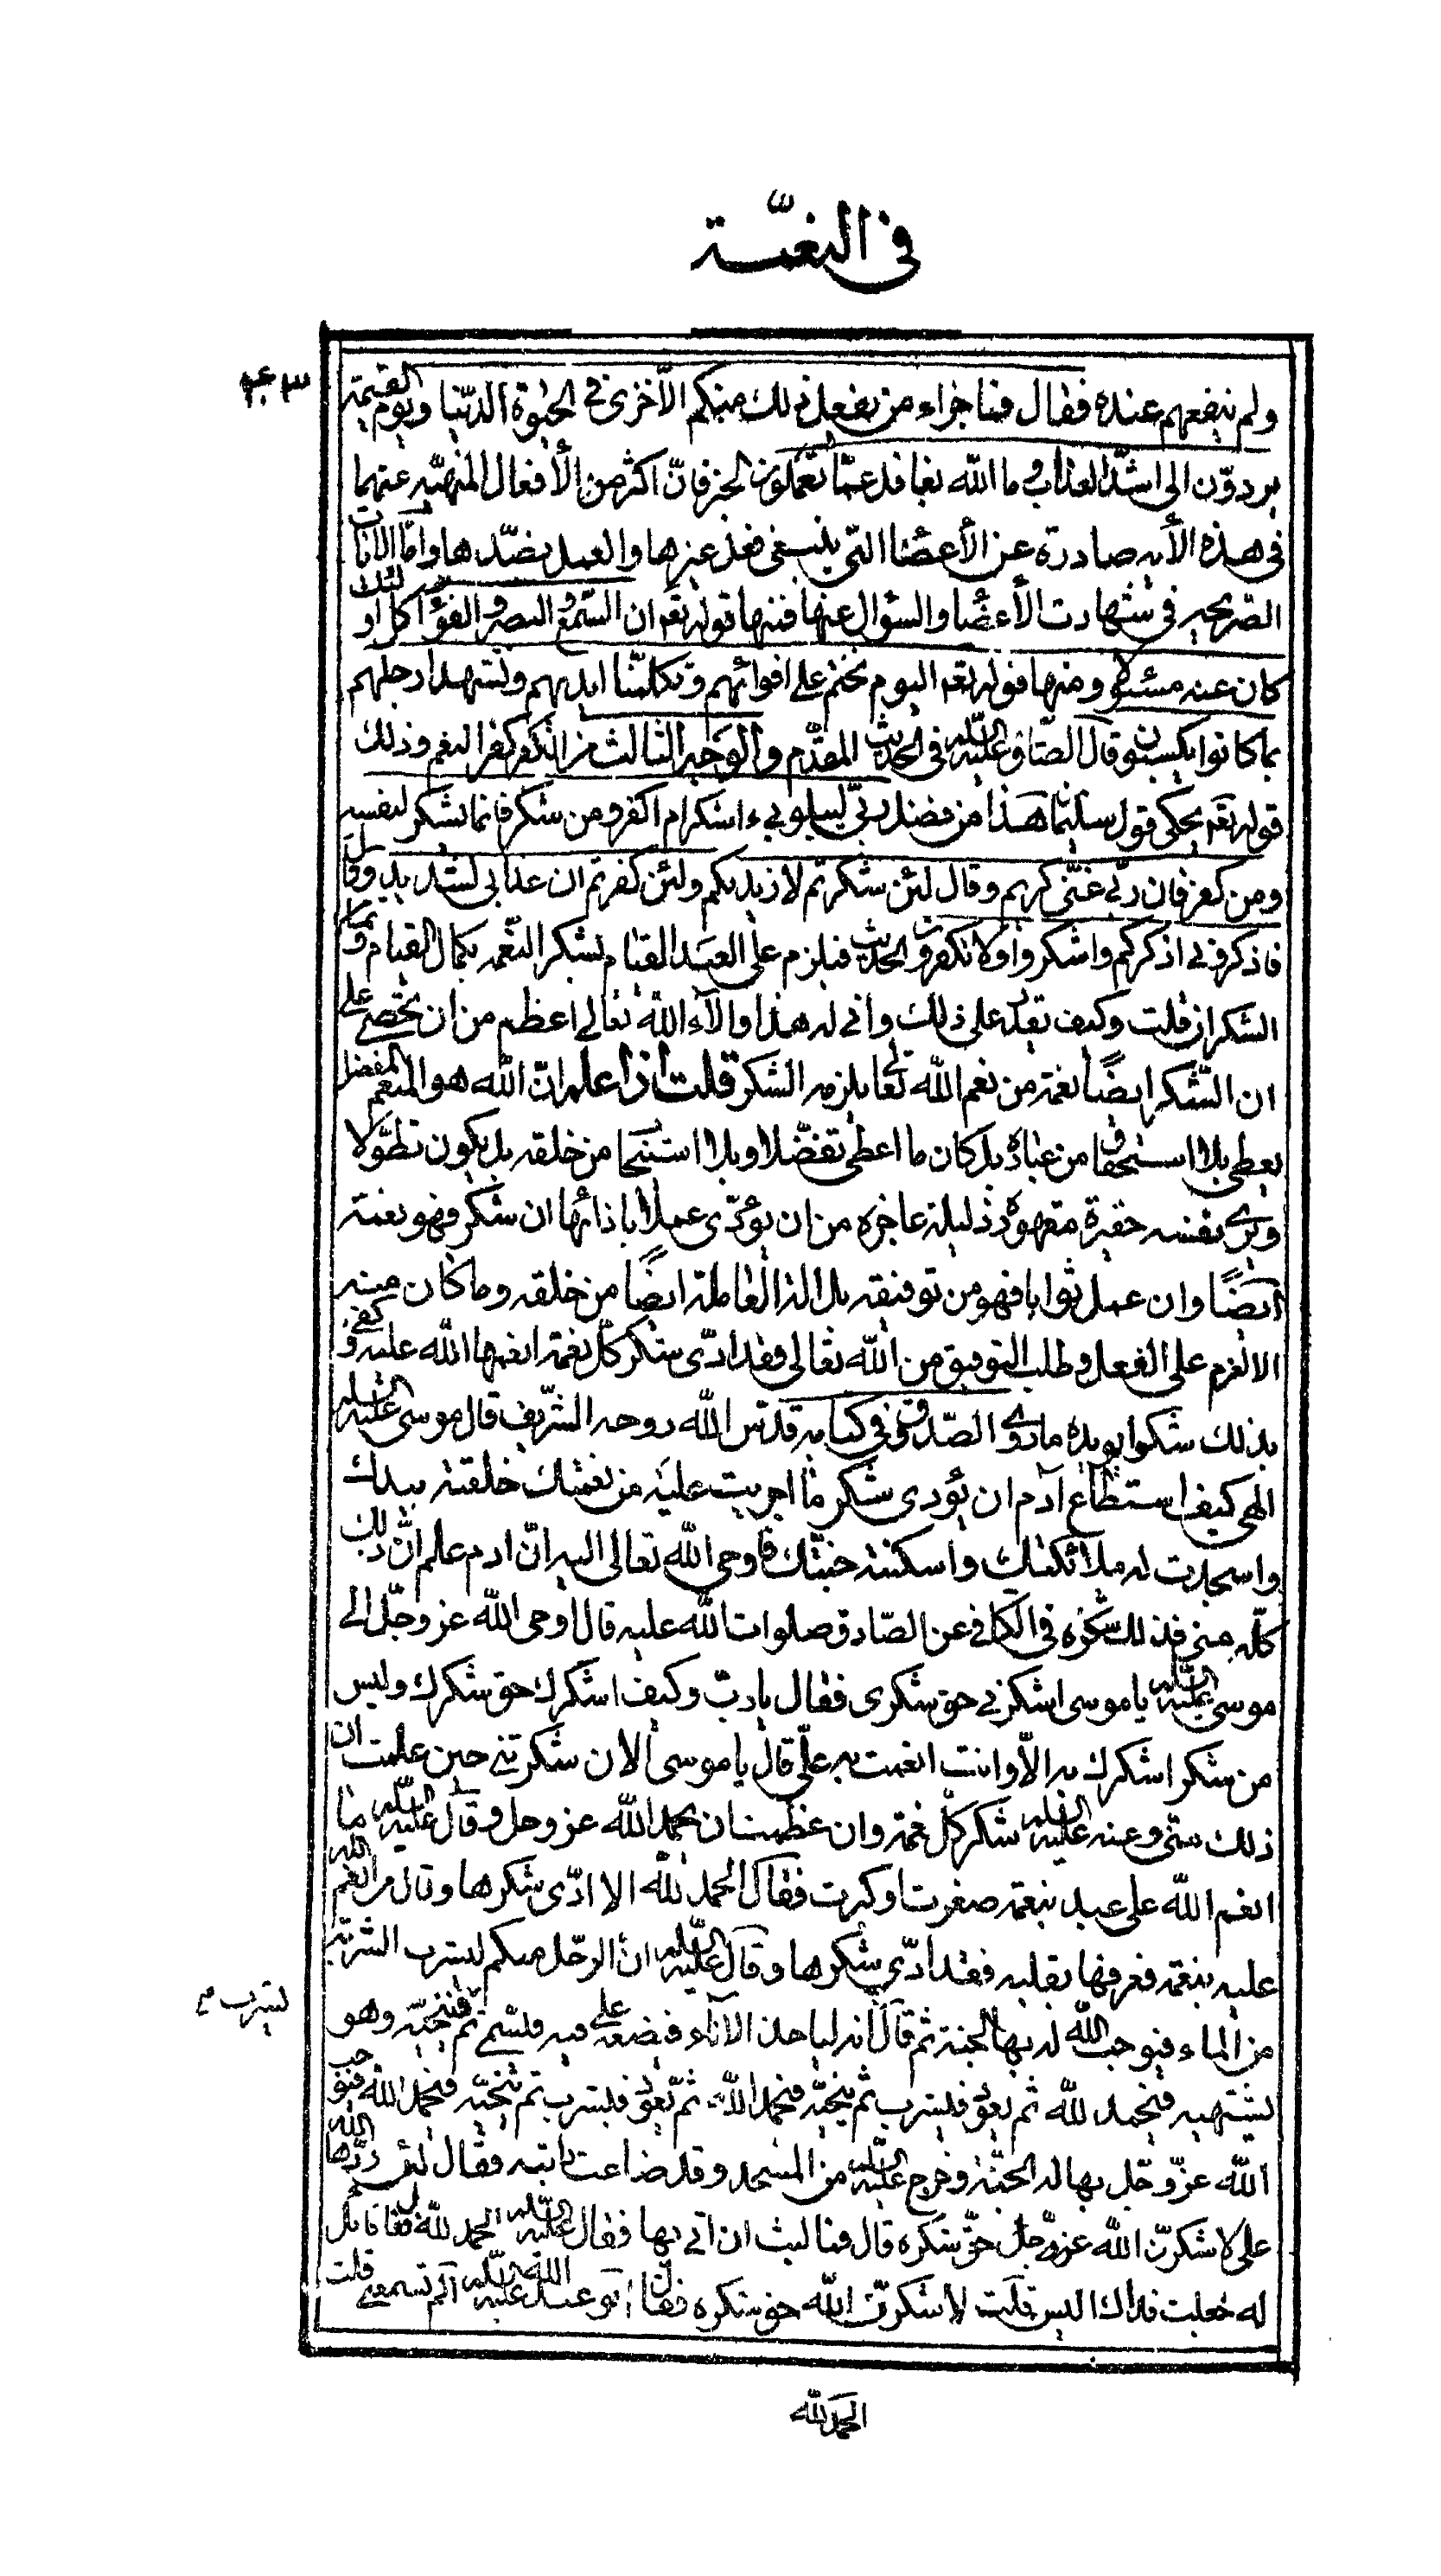 فى النعمة
ولم ينفعهم عنده فقال فما جزاء من يفعل ذلك منكم الّا خزى فى الحيوة الدّنيا ويوم القيمة
يردّون الى اشدّ العذاب وما اللّه بغافل عمّا تعملون الخبر فانّ اكثر من الأفعال المنهيّه عنهما
فى هذه الأيه صادرة عن الأعضا التى ينبغى والعمل بضدّها وامّا الايات
الصّريحه فى شهادت الأعضا والسؤال عنها فمنها قوله تعه ان السّمع والبصر والفؤاد كل اولئك
كان عنه مسئولا ومنها قوله تعه اليوم نختم على افواههم وتكلمّنا ايديهم وتشهد ارجلهم
بما كانوا يكسبون وقال الصّادق عليه السّلام فى الحديث المقدّم والوجه الثالث من الكفر كفر النعم وذلك
قوله تعه يحكى قول سليمان هذا من فضل ربّى ليبلونى ءاشكر ام اكفر ومن شكر فانما يشكر لنفسه
ومن كفر فان ربّى غنّى كريم وقال لئن شكرتم لازيدنكم ولئن كفرتم ان عذابى لشديد وقال
فاذكرونى اذكركم واشكروا لى ولا تكفرون الحديث فيلزم على العبد القيام لشكر النّعمه بكمال القيام وتمام
الشكر ان قلت وكيف يقدر على ذلك وانى له هذا والآء اللّه تعالى اعظم من ان يحصى على
ان الشّكر ايضًا نعمة من نعم اللّه تعالى يلزمه الشكر قلت اذا علم انّ اللّه هو المنعم المفضل
يعطى بلا استحقاق من عباده بل كان ما اعطى تفضّلا وبلا من خلقه بل يكون تطوّلا
ويرى نفسه حقيرة مقهورة ذليلة عاجزه من ان يؤدّى عملا باذائها ان شكر فهو نعمة
ايضًا وان عمل ثوابا فهو من توفيقه بل الالة العاملة ايضًا من خلقه وما كان منه
الا العزم على الفعل وطلب التوفيق من اللّه تعالى فقد ادّى شكر كلّ نعمة انعمها اللّه عليه وكفى
بذلك شكوا يويده ما روى الصّدوق فى كتابه قدّس اللّه روحه الشّريف قال موسى عليه السّلام
الهى كيف استطاع آدم ان يؤدى شكر ما اجريت عليه من نعمتك خلقته بيدك
واسجدت له ملائكتك واسكنته جنّتك فاوحى اللّه تعالى اليه انّ ادم علم انّ ذلك
كلّه منى فذلك شكره فى الكافى عن الصّادق صلوات اللّه عليه قال اوحى اللّه عز وجلّ الى
موسى عليه السّلام يا موسى اشكرنى حق شكرى فقال يا ربّ وكيف اشكرك حق شكرك وليس
من شكر اشكرك به الّا وانت انعمت به علّى قال يا موسى الان شكرتنى حين علمت ان
ذلك منّى وعنه عليه السّلام شكر كلّ نعمة وان عظمت ان يحمد اللّه عز وجل وقال عليه السّلام ما
انعم اللّه على عبد بنعمة صغرت او كبرت فقال الحمد للّه الا ادّى شكرها وقال من انعم اللّه
عليه بنعمة فعرفها بقلبه فقد ادّى شكرها وقال عليه السّلام انّ الرجل منكم ليشرب الشربة
من الماء فيوجب اللّه له بها الجنة ثم قال انه لياخذ الاناء فيضعه على فيه فيسّمى ثم فينحيّه وهو
يشتهيه فيحمد للّه ثم يعود فيشرب ثم ينحيّه فيحمد اللّه ثمّ يعود فيشرب ثم ينحيّه فيحمد اللّه فيوجب
اللّه عزّ وجّل بها له الجنّة وخرج عليه السّلام من المسجد وقد ضاعت دابته فقال لئن ردّها اللّه
علىّ لاشكرنّ اللّه عزّ وجلّ حقّ شكره قال فما لبث ان اتى بها فقال عليه السّلام الحمد للّه فقال قائل
له جعلت فداك اليس قلت لاشكرنّ اللّه حق شكره فقال ابو عبد اللّه عليه السّلام الم تسمعنى قلت
الحمد للّه